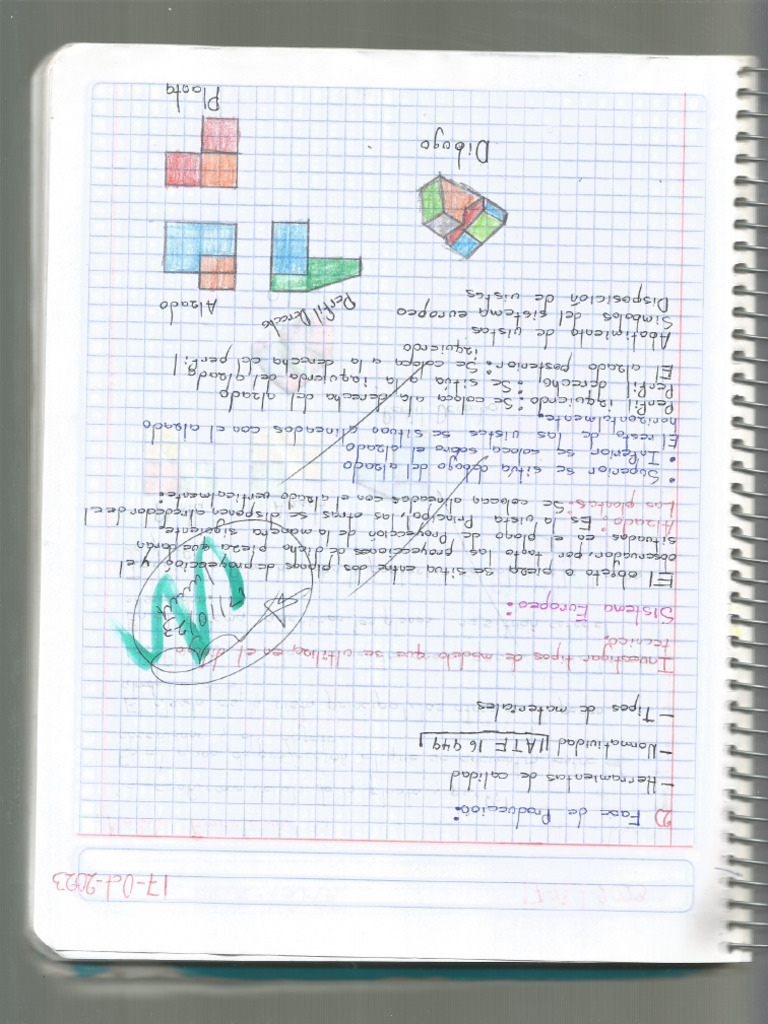 17-Oct-2023
2) Fase de Producción:
- Herramientas de calidad
- Normatividad IATF 16949
- Tipos de materiales
Investigar tipos de modelo que se utiliza en el dibujo
tecnico:
Sistema Europeo:
El objeto o pieza se situa entre dos planos de proyección y el
observador, por tanto las proyecciones de dicha pieza, quedaran
situadas en el plano de Proyección de la manera siguiente:
Alzado: Es la vista Principal, las otras se disponen alrededor de el
Las plantas: Se colocan alineadas con el alzado verticamente:
• Superior se sitúa debajo del alzado
• Inferior se coloca sobre el alzado
El resto de las vistas se situan alineados con el alzado
horizontalmente:
Perfil izquierdo: Se coloca ala derecha del alzado
Perfil derecho: Se sitúa a la izquierda del alzado
El alzado posterior: Se coloca a la derecha del perfil
izquierdo
Abatimiento de vistas
Simbolos del sistema europeo
Disposición de vistas
Perfil Derecho
Alzado
Dibugo
Planta